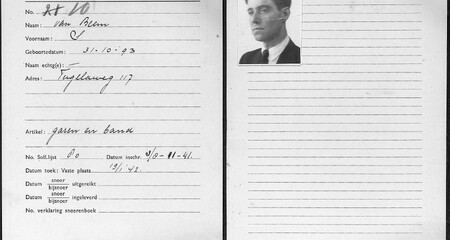 No. 28
Naam: van Beem
Voornaam:
Geboortedatum: 31-10-93
Naam echtg(e):
Adres: Tugelaweg 117
Artikel: garen en band
No. Soll.lijst 80 Datum inschr. 3/8-11-41.
Datum toek: Vaste plaats 13/1 '42.
Datum snoer/bijsnoer uitgereikt
Datum snoer/bijsnoer ingeleverd
No. verklaring snoerenboek :